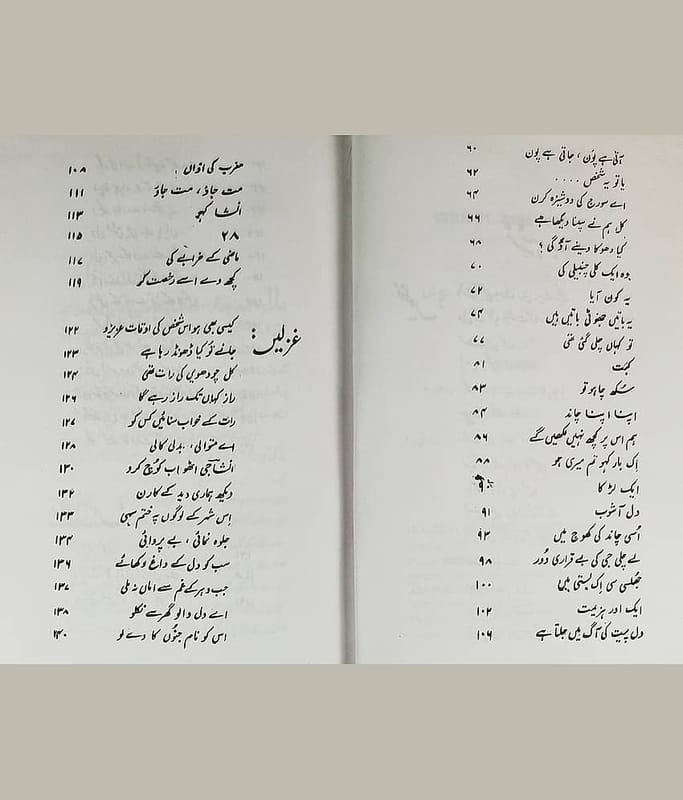 آتی ہے پَون، جاتی ہے پون ۶۰
یا تو یہ شخص .... ۶۲
اے سورج کی دوشیزہ کرن ۶۴
کل ہم نے سپنا دیکھا ہے ۶۶
کیا دھوکا دینے آؤ گی؟ ۶۸
وہ ایک کلی چنبیلی کی ۷۰
یہ کون آیا ۷۲
یہ باتیں جھوٹی باتیں ہیں ۷۴
تو کہاں چلی گئی تھی ۷۷
کبت ۸۱
سُکھ چاہو تو ۸۳
اپنا اپنا چاند ۸۴
ہم اس پر کچھ نہیں لکھیں گے ۸۶
اِک بار کہو تم میری ہو ۸۸
ایک لڑکا ۹۰
دل آشوب ۹۱
اُسی چاند کی کھوج میں ۹۳
لے چلی جی کی بے قراری دُور ۹۸
جھُلسی سی اِک بستی میں ۱۰۰
ایک اور ہزیمت ۱۰۲
دل پیت کی آگ میں جلتا ہے ۱۰۶
مغرب کی اذاں ۱۰۸
مت جاؤ، مت جاؤ ۱۱۱
انشا کہو ۱۱۳
۲۸ ۱۱۵
ماضی کے خرابے کی ۱۱۷
کچھ دے اسے رخصت کر ۱۱۹
غزلیں:
کیسی بھی ہو اس شخص کی اوقات عزیزو ۱۲۲
جانے تُو کیا ڈھونڈ رہا ہے ۱۲۳
کل چودھویں کی رات تھی ۱۲۴
راز کہاں تک راز رہے گا ۱۲۶
رات کے خواب سنائیں کس کو ۱۲۷
اے متوالی، بدلی کالی ۱۲۸
انشا جی اٹھو اب کُوچ کرو ۱۳۰
دیکھ ہماری دید کے کارن ۱۳۲
اِس شہر کے لوگوں پہ ختم سہی ۱۳۳
جلوہ نمائی، بے پروائی ۱۳۴
سب کو دل کے داغ دکھائے ۱۳۶
جب دہر کے غم سے اماں نہ ملی ۱۳۷
اے دل والو گھر سے نکلو ۱۳۸
اس کو نام جنُوں کا دے لو ۱۴۰